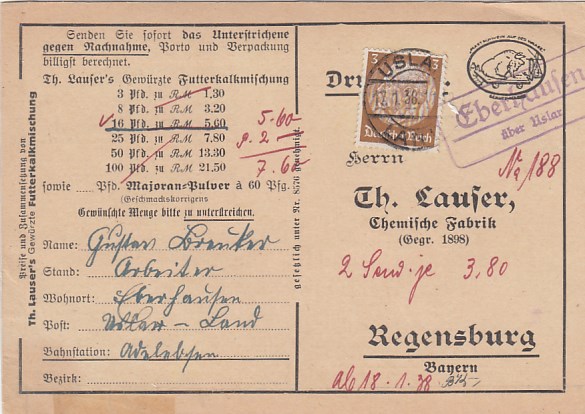 Senden Sie sofort das Unterstrichene
gegen Nachnahme, Porto und Verpackung
billigst berechnet.
Th. Lauser's Gewürzte Futterkalkmischung
3 Pfd. zu RM 1.30
8 Pfd. zu RM 3.20
16 Pfd. zu RM 5.60
25 Pfd. zu RM 7.80
50 Pfd. zu RM 13.30
100 Pfd. zu RM 21.50
5.60
2
7.60
sowie Pfd. Majoran-Pulver à 60 Pfg.
(Geschmackskorrigens
Gewünschte Menge bitte zu unterstreichen.
Name: Gustav Breuker
Stand: Arbeiter
Wohnort: Eberhausen
Post: Uslar - Land
Bahnstation: Adelebsen
Bezirk:
Preise und Zusammensetzung von
Th. Lauser's Gewürzte Futterkalkmischung
gesetzlich unter Nr. 8576 geschützt.
3 3
USLAR
17.1.38
Deutsches Reich
Eberhausen
über Uslar
Herrn
No 188
Th. Lauser,
Chemische Fabrik
(Gegr. 1898)
2 Send. je 3,80
Regensburg
Bayern
ab 18.1.38